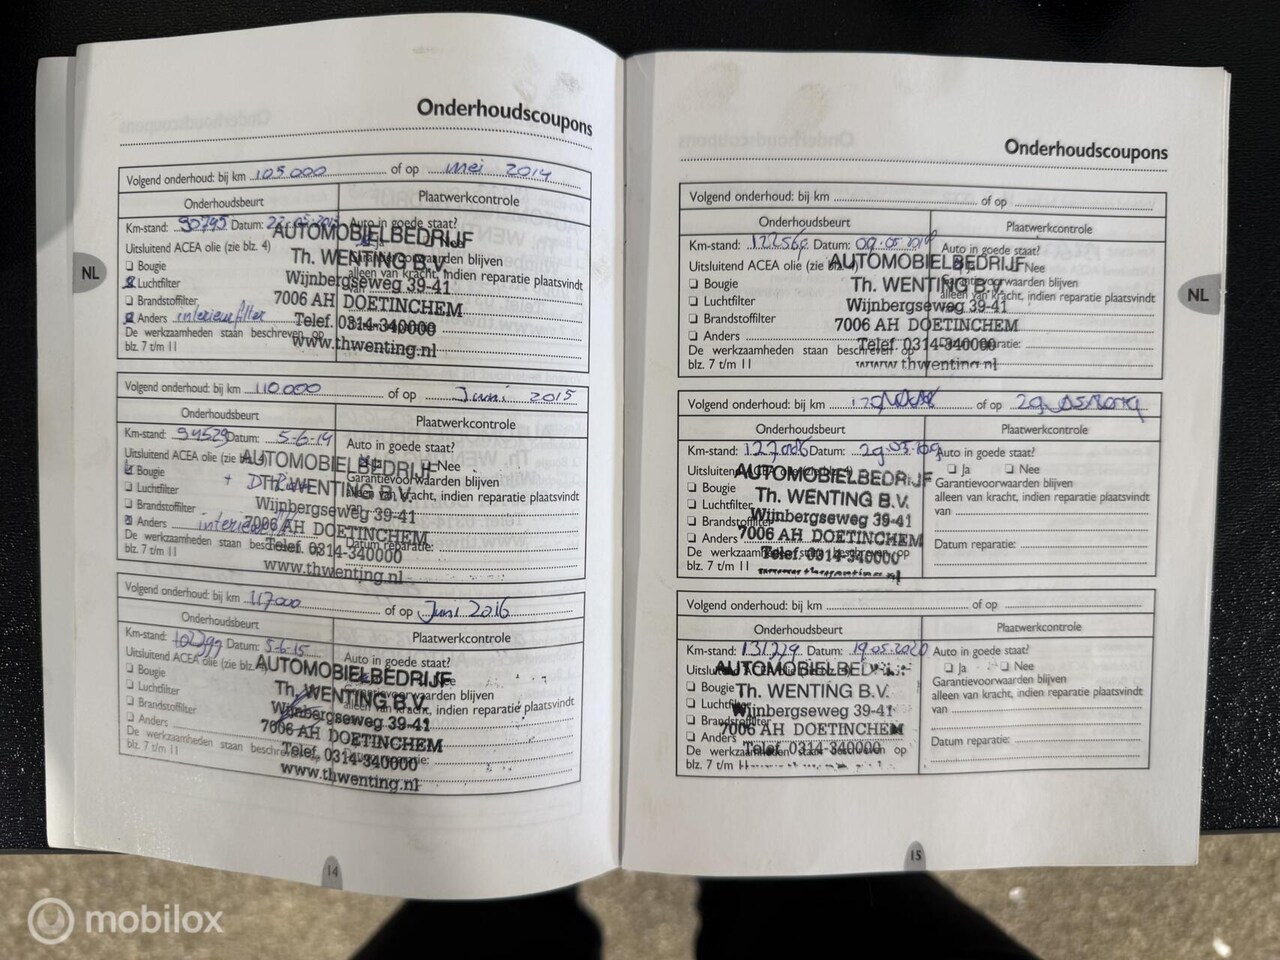 Onderhoudscoupons
Volgend onderhoud: bij km 105000 of op mei 2014
Onderhoudsbeurt
Plaatwerkcontrole
Km-stand: 90745 Datum: 22-05-2013
Auto in goede staat?
Uitsluitend ACEA olie (zie blz. 4)
Nee
Bougie
Garantievoorwaarden blijven
Luchtfilter
alleen van kracht, indien reparatie plaatsvindt
Brandstoffilter
van
Anders interieurfilter
De werkzaamheden staan beschreven op
blz. 7 t/m 11
AUTOMOBIELBEDRIJF
Th. WENTING B.V.
Wijnbergseweg 39-41
7006 AH DOETINCHEM
Telef. 0314-340000
www.thwenting.nl
Volgend onderhoud: bij km 110.000 of op Juni 2015
Onderhoudsbeurt
Plaatwerkcontrole
Km-stand: 94529 Datum: 5-6-14
Auto in goede staat?
Uitsluitend ACEA olie (zie blz. 4)
Nee
Bougie
Garantievoorwaarden blijven
Luchtfilter
alleen van kracht, indien reparatie plaatsvindt
Brandstoffilter
Anders
Datum reparatie:
De werkzaamheden staan beschreven op
blz. 7 t/m 11
AUTOMOBIELBEDRIJF
Th. WENTING B.V.
Wijnbergseweg 39-41
7006 AH DOETINCHEM
Telef. 0314-340000
www.thwenting.nl
Volgend onderhoud: bij km 117000 of op Juni 2016
Onderhoudsbeurt
Plaatwerkcontrole
Km-stand: Datum: 5-6-15
Auto in goede staat?
Uitsluitend ACEA olie (zie blz.
Bougie
Garantievoorwaarden blijven
Luchtfilter
alleen van kracht, indien reparatie plaatsvindt
Brandstoffilter
Anders
De werkzaamheden staan beschreven op
blz. 7 t/m 11
AUTOMOBIELBEDRIJF
Th. WENTING B.V.
Wijnbergseweg 39-41
7006 AH DOETINCHEM
Telef. 0314-340000
www.thwenting.nl
NL
14
Onderhoudscoupons
Volgend onderhoud: bij km of op
Onderhoudsbeurt
Plaatwerkcontrole
Km-stand: Datum:
Auto in goede staat?
Uitsluitend ACEA olie (zie blz. 4)
Nee
Bougie
Garantievoorwaarden blijven
Luchtfilter
alleen van kracht, indien reparatie plaatsvindt
Brandstoffilter
van
Anders
Datum reparatie:
De werkzaamheden staan beschreven op
blz. 7 t/m 11
AUTOMOBIELBEDRIJF
Th. WENTING B.V.
Wijnbergseweg 39-41
7006 AH DOETINCHEM
Telef. 0314-340000
www.thwenting.nl
Volgend onderhoud: bij km of op
Onderhoudsbeurt
Plaatwerkcontrole
Km-stand: Datum:
Auto in goede staat?
Uitsluitend ACEA olie
Ja Nee
Bougie
Garantievoorwaarden blijven
Luchtfilter
alleen van kracht, indien reparatie plaatsvindt
Brandstoffilter
van
Anders
Datum reparatie:
De werkzaamheden staan beschreven op
blz. 7 t/m 11
AUTOMOBIELBEDRIJF
Th. WENTING B.V.
Wijnbergseweg 39-41
7006 AH DOETINCHEM
Telef. 0314-340000
Volgend onderhoud: bij km of op
Onderhoudsbeurt
Plaatwerkcontrole
Km-stand: 131279 Datum: 19.05.2020
Auto in goede staat?
Ja Nee
Bougie
Garantievoorwaarden blijven
Luchtfilter
alleen van kracht, indien reparatie plaatsvindt
Brandstoffilter
van
Anders
Datum reparatie:
De werkzaamheden staan beschreven op
blz. 7 t/m 11
AUTOMOBIELBEDRIJF
Th. WENTING B.V.
Wijnbergseweg 39-41
7006 AH DOETINCHEM
Telef. 0314-340000
NL
15
mobilox